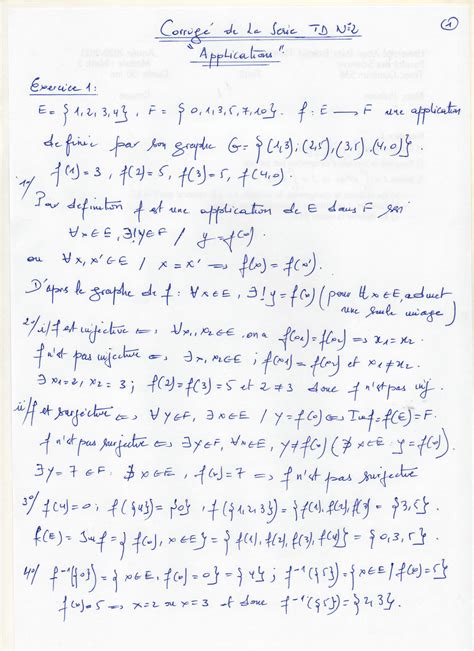 ①
Corrigé de la Serie TD N°2
"Applications".
Exercice 1:
E = {1,2,3,4}, F = {0,1,3,5,7,10}. f: E → F une application
definie par son graphe G = {(1,3),(2,5),(3,5),(4,0)}.
f(1)=3, f(2)=5, f(3)=5, f(4,0).
1°/
Par definition f est une application de E dans F ssi
∀x∈E, ∃!y∈F / y=f(x).
ou ∀x,x'∈E / x=x' ⇒ f(x)=f(x').
D'après le graphe de f: ∀x∈E, ∃!y=f(x) (pour tt x∈E, admet
une seule image)
2°/ i/ f est injective ⇔ ∀x₁,x₂∈E on a f(x₁)=f(x₂) ⇒ x₁=x₂.
f n'est pas injective ⇔ ∃x₁,x₂∈E; f(x₁)=f(x₂) et x₁≠x₂.
∃x₁=2, x₂=3; f(2)=f(3)=5 et 2≠3 donc f n'est pas inj.
ii/ f est surjective ⇔ ∀y∈F, ∃x∈E / y=f(x) ⇔ Imf=f(E)=F.
f n'est pas surjective ⇔ ∃y∈F, ∀x∈E, y≠f(x) (∄x∈E: y=f(x)).
∃y=7∈F, ∄x∈E, f(x)=7 ⇒ f n'est pas surjective
3°/ f(4)=0, f({4})={0}, f({1,2,3})={f(1),f(2),f(3)}={3,5}.
f(E)=Imf={f(x), x∈E}={f(1),f(2),f(3),f(4)}={0,3,5}.
4°/ f⁻¹({0})={x∈E, f(x)=0}={4}; f⁻¹({5})={x∈E/f(x)=5}
f(x)=5 ⇒ x=2 ou x=3 et donc f⁻¹({5})={2,3}.